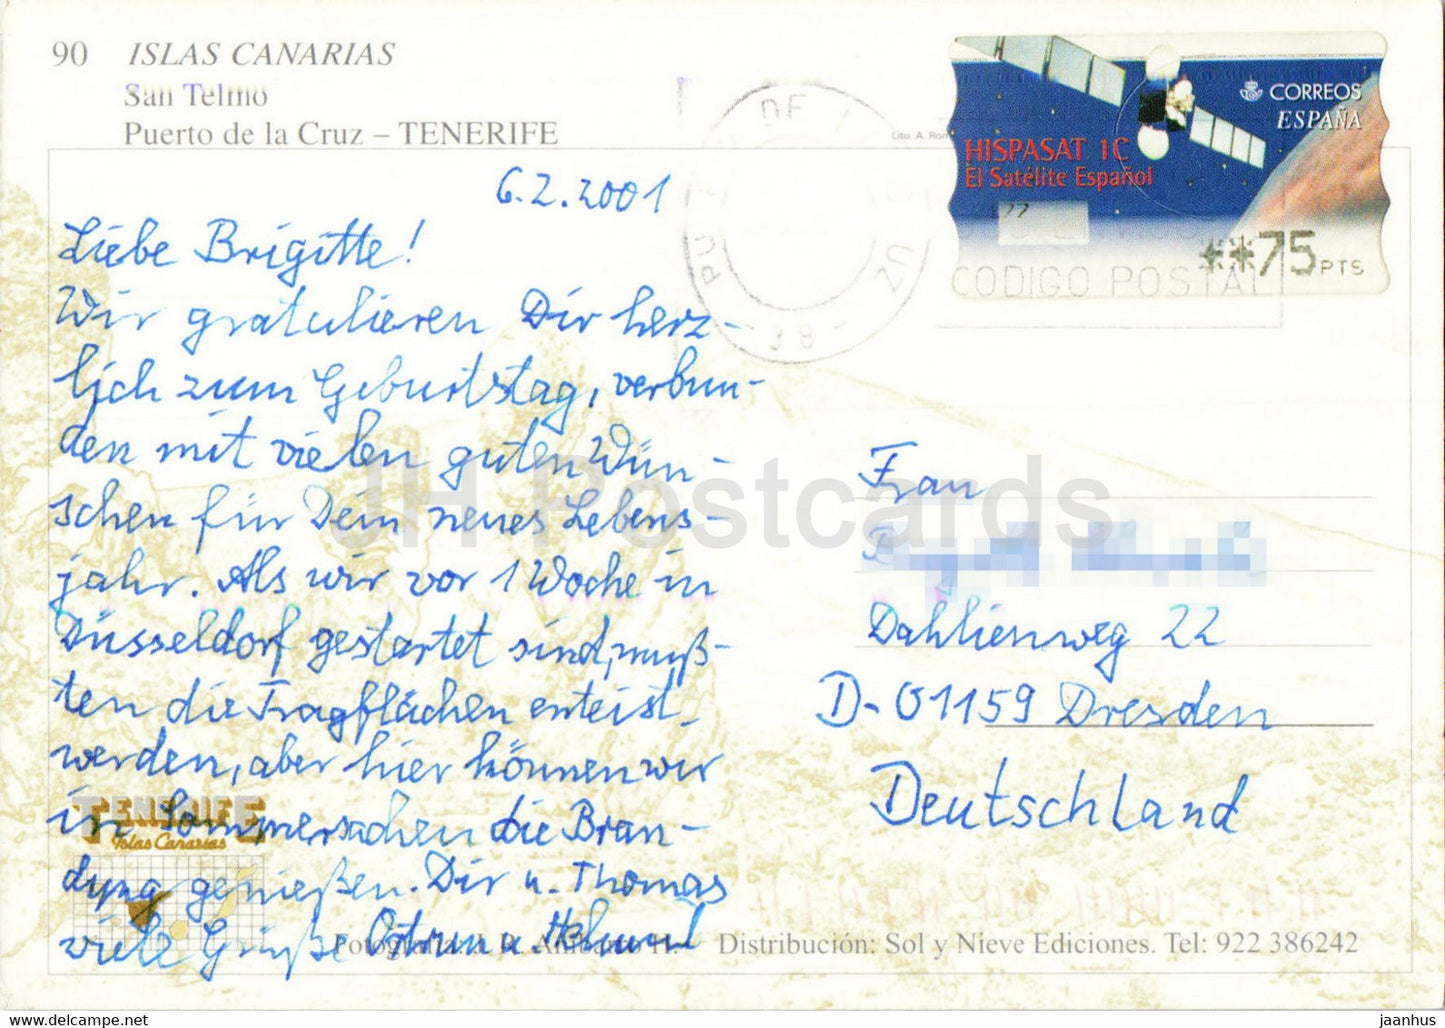 90 ISLAS CANARIAS
San Telmo
Puerto de la Cruz – TENERIFE
Lito. A. Rom
CORREOS
ESPAÑA
HISPASAT 1C
El Satélite Español
**75 PTS
CODIGO POSTAL
- 38 -
6.2.2001
Liebe Brigitte!
Wir gratulieren Dir herz-
lich zum Geburtstag, verbun-
den mit vielen guten Wün-
schen für Dein neues Lebens-
jahr. Als wir vor 1 Woche in
Düsseldorf gestartet sind, muß-
ten die Tragflächen enteist
werden, aber hier können wir
in Sommersachen die Bran-
dung genießen. Dir u. Thomas
viele Grüße
Frau
Dahlienweg 22
D-01159 Dresden
Deutschland
TENERIFE
Islas Canarias
Distribución: Sol y Nieve Ediciones. Tel: 922 386242
JH Postcards
https://www.jaanhu.com
jaanhus